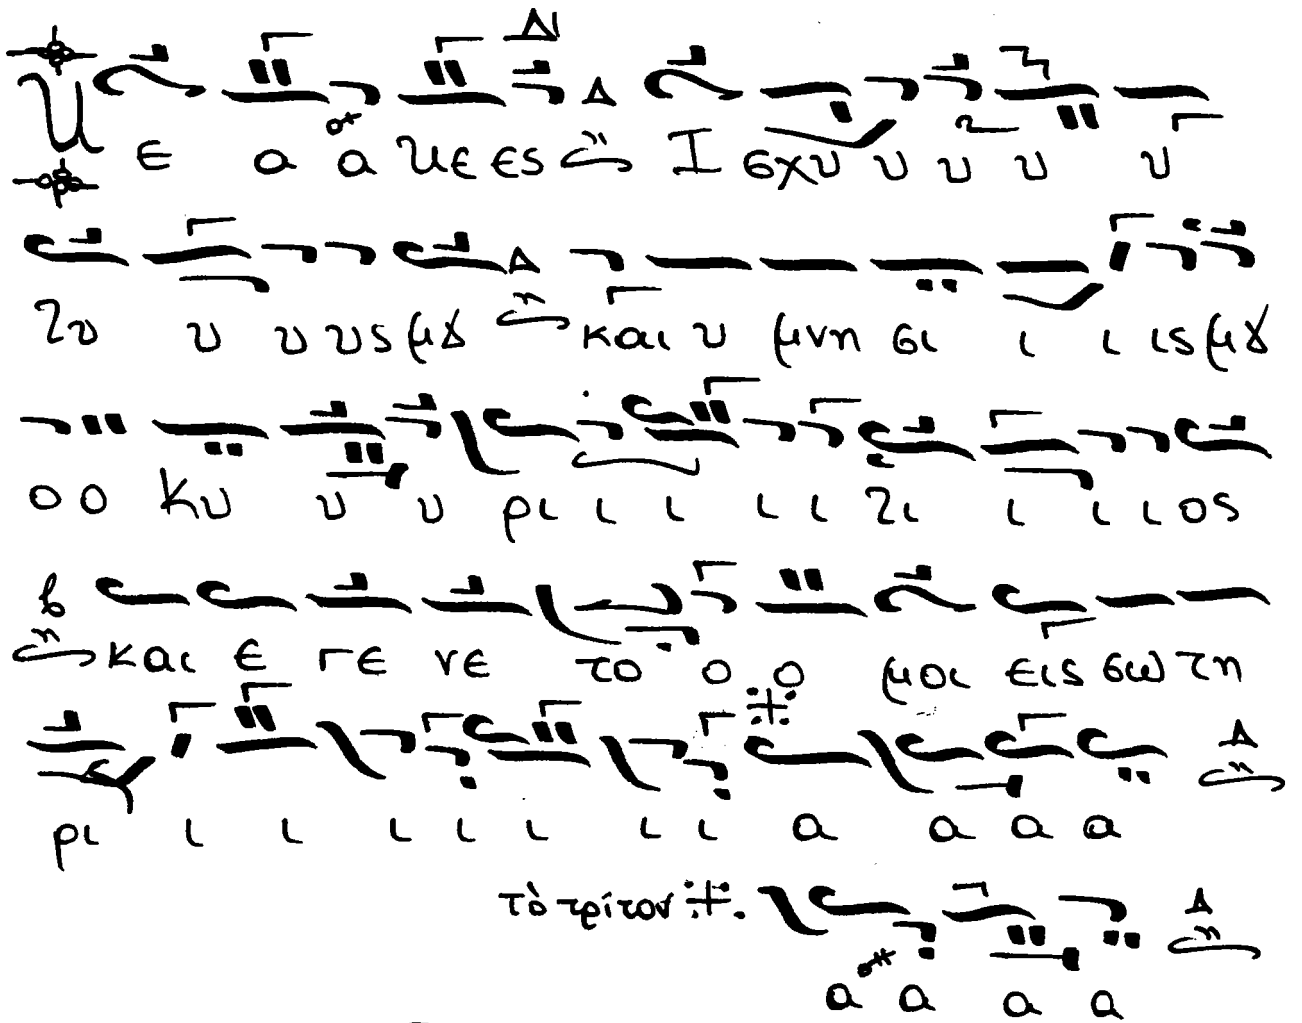 Ν ε α α νε ες Ι σχυ υ υ υ υ
ζυ υ υ υς μȣ και υ μνη σι ι ι ις μȣ
ο ο Κυ υ υ ρι ι ι ι ι ζι ι ι ι ος
και ε γε νε το ο ο μοι εις σω τη
ρι ι ι ι ι ι ι ι α α α α
τὸ τρίτον
α α α α